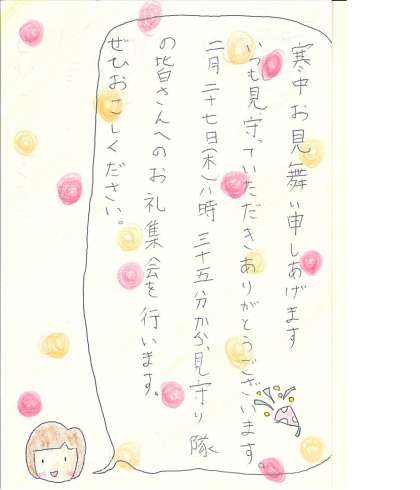 寒中お見舞い申しあげます
いつも見守っていただきありがとうございます。
二月二十七日(木)八時三十五分から、見守り隊
の皆さんへのお礼集会を行います。
ぜひおこしください。